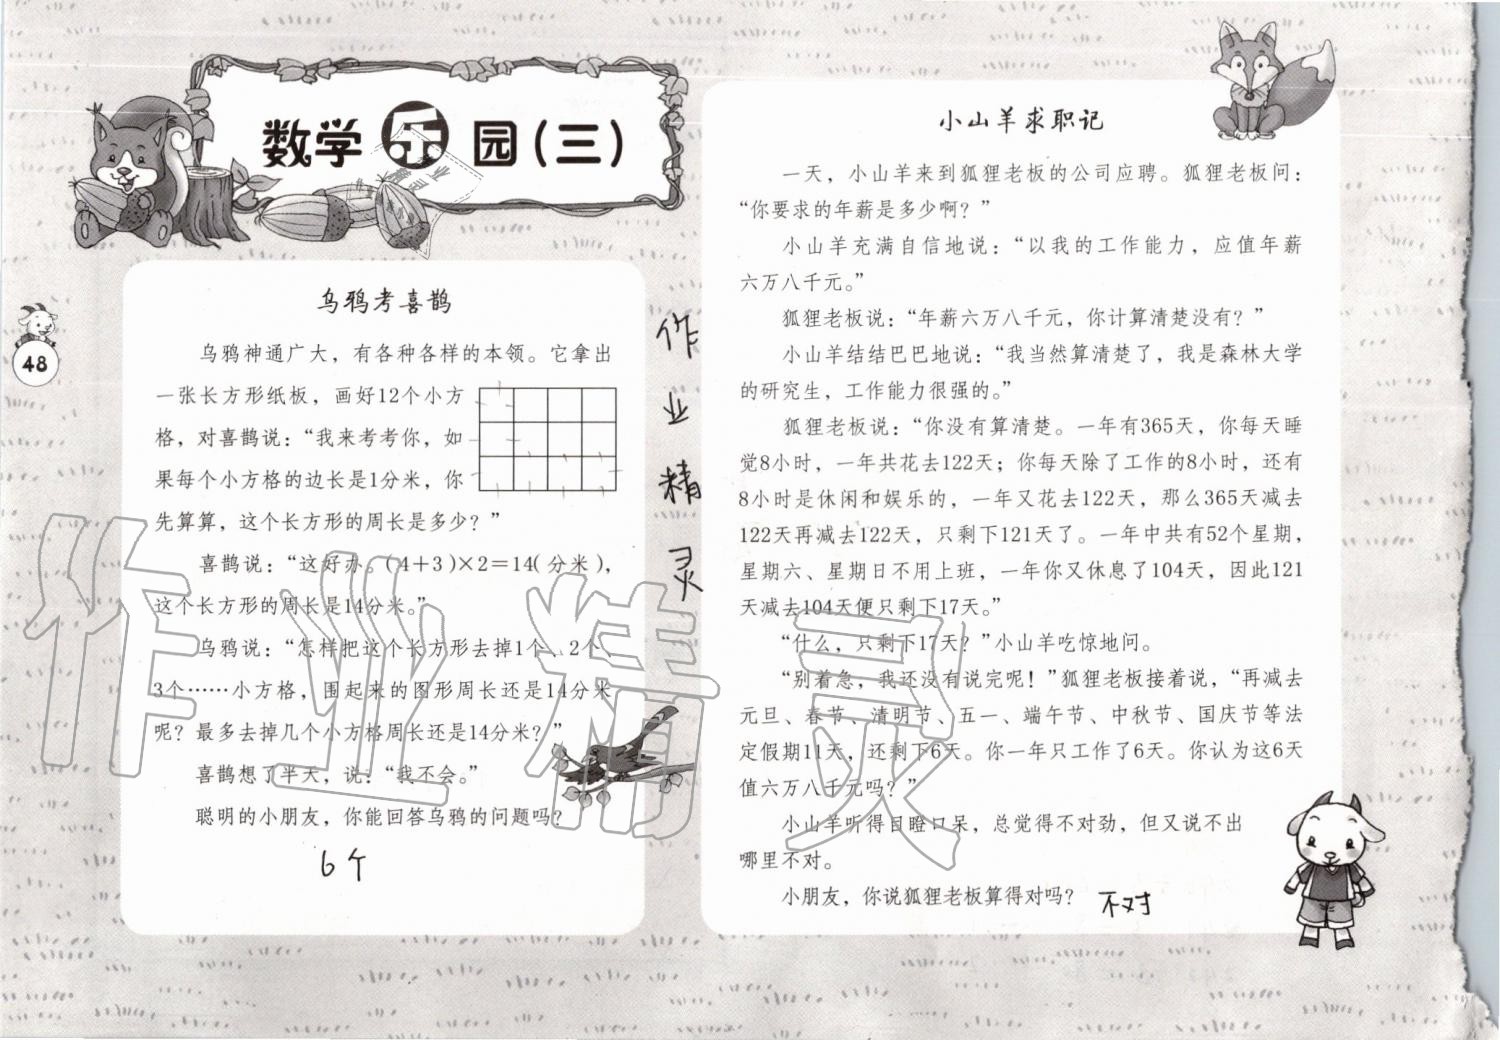 数学乐园（三）
48
乌鸦考喜鹊
乌鸦神通广大，有各种各样的本领。它拿出
一张长方形纸板，画好12个小方
格，对喜鹊说：“我来考考你，如
果每个小方格的边长是1分米，你
先算算，这个长方形的周长是多少？”
喜鹊说：“这好办。（4＋3）×2＝14（分米），
这个长方形的周长是14分米。”
乌鸦说：“怎样把这个长方形去掉1个、2个、
3个……小方格，围起来的图形周长还是14分米
呢？最多去掉几个小方格周长还是14分米？”
喜鹊想了半天，说：“我不会。”
聪明的小朋友，你能回答乌鸦的问题吗？
6个
作业精灵
作业精灵
小山羊求职记
一天，小山羊来到狐狸老板的公司应聘。狐狸老板问：
“你要求的年薪是多少啊？”
小山羊充满自信地说：“以我的工作能力，应值年薪
六万八千元。”
狐狸老板说：“年薪六万八千元，你计算清楚没有？”
小山羊结结巴巴地说：“我当然算清楚了，我是森林大学
的研究生，工作能力很强的。”
狐狸老板说：“你没有算清楚。一年有365天，你每天睡
觉8小时，一年共花去122天；你每天除了工作的8小时，还有
8小时是休闲和娱乐的，一年又花去122天，那么365天减去
122天再减去122天，只剩下121天了。一年中共有52个星期，
星期六、星期日不用上班，一年你又休息了104天，因此121
天减去104天便只剩下17天。”
“什么，只剩下17天？”小山羊吃惊地问。
“别着急，我还没有说完呢！”狐狸老板接着说，“再减去
元旦、春节、清明节、五一、端午节、中秋节、国庆节等法
定假期11天，还剩下6天。你一年只工作了6天。你认为这6天
值六万八千元吗？”
小山羊听得目瞪口呆，总觉得不对劲，但又说不出
哪里不对。
小朋友，你说狐狸老板算得对吗？ 不对